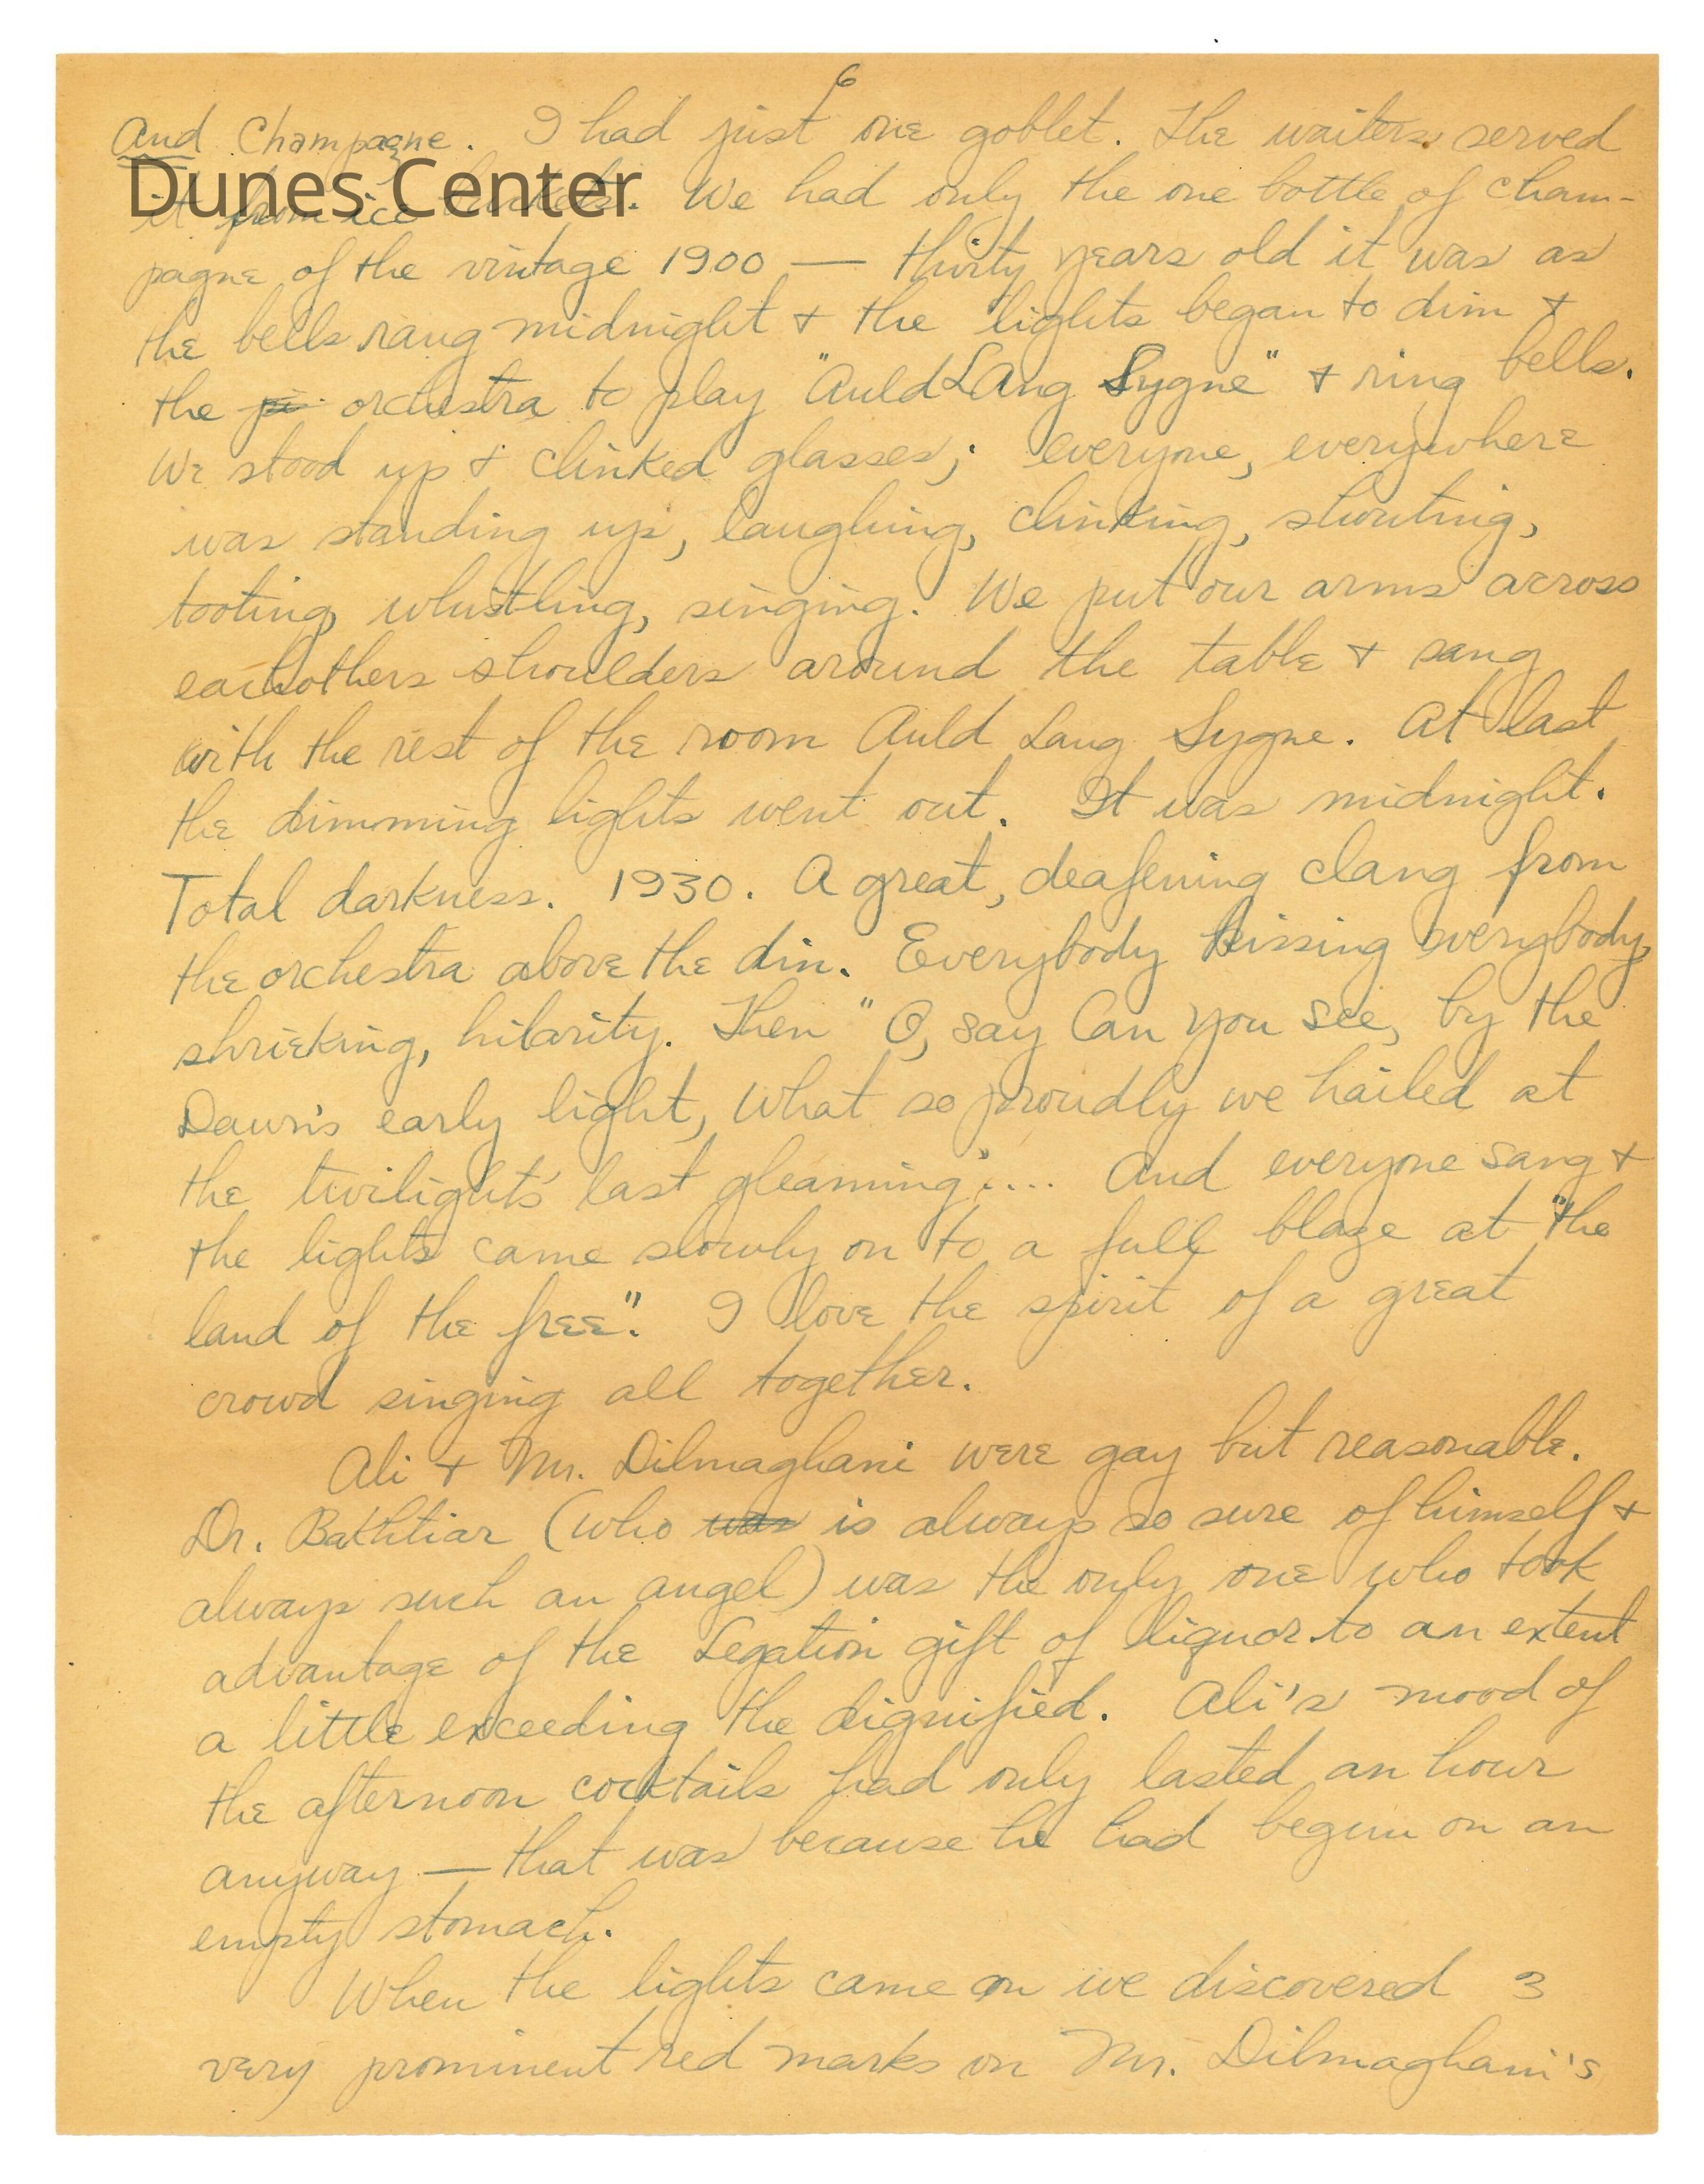 6
And Champagne. I had just one goblet. The waiters served
Dunes Center
it from ice buckets. We had only the one bottle of cham-
pagne of the vintage 1900 — thirty years old it was as
the bells rang midnight + the lights began to dim +
the orchestra to play "Auld Lang Sygne" + ring bells.
We stood up + clinked glasses; everyone, everywhere
was standing up, laughing, clinking, shouting,
tooting, whistling, singing. We put our arms across
eachothers shoulders around the table + sang
with the rest of the room Auld Lang Sygne. At last
the dimming lights went out. It was midnight.
Total darkness. 1930. A great, deafening clang from
the orchestra above the din. Everybody kissing everybody,
shrieking, hilarity. Then "O, say Can you see, by the
Dawn's early light, What so proudly we hailed at
the twilight's last gleaming".... And everyone sang +
the lights came slowly on to a full blaze at "the
land of the free". I love the spirit of a great
crowd singing all together.
Ali + Mr. Dilmaghani were gay but reasonable.
Dr. Bakhtiar (who was is always so sure of himself +
always such an angel) was the only one who took
advantage of the Legation gift of liquor to an extent
a little exceeding the dignified. Ali's mood of
the afternoon cocktails had only lasted an hour
anyway — that was because he had begun on an
empty stomach.
When the lights came on we discovered 3
very prominent red marks on Mr. Dilmaghani's